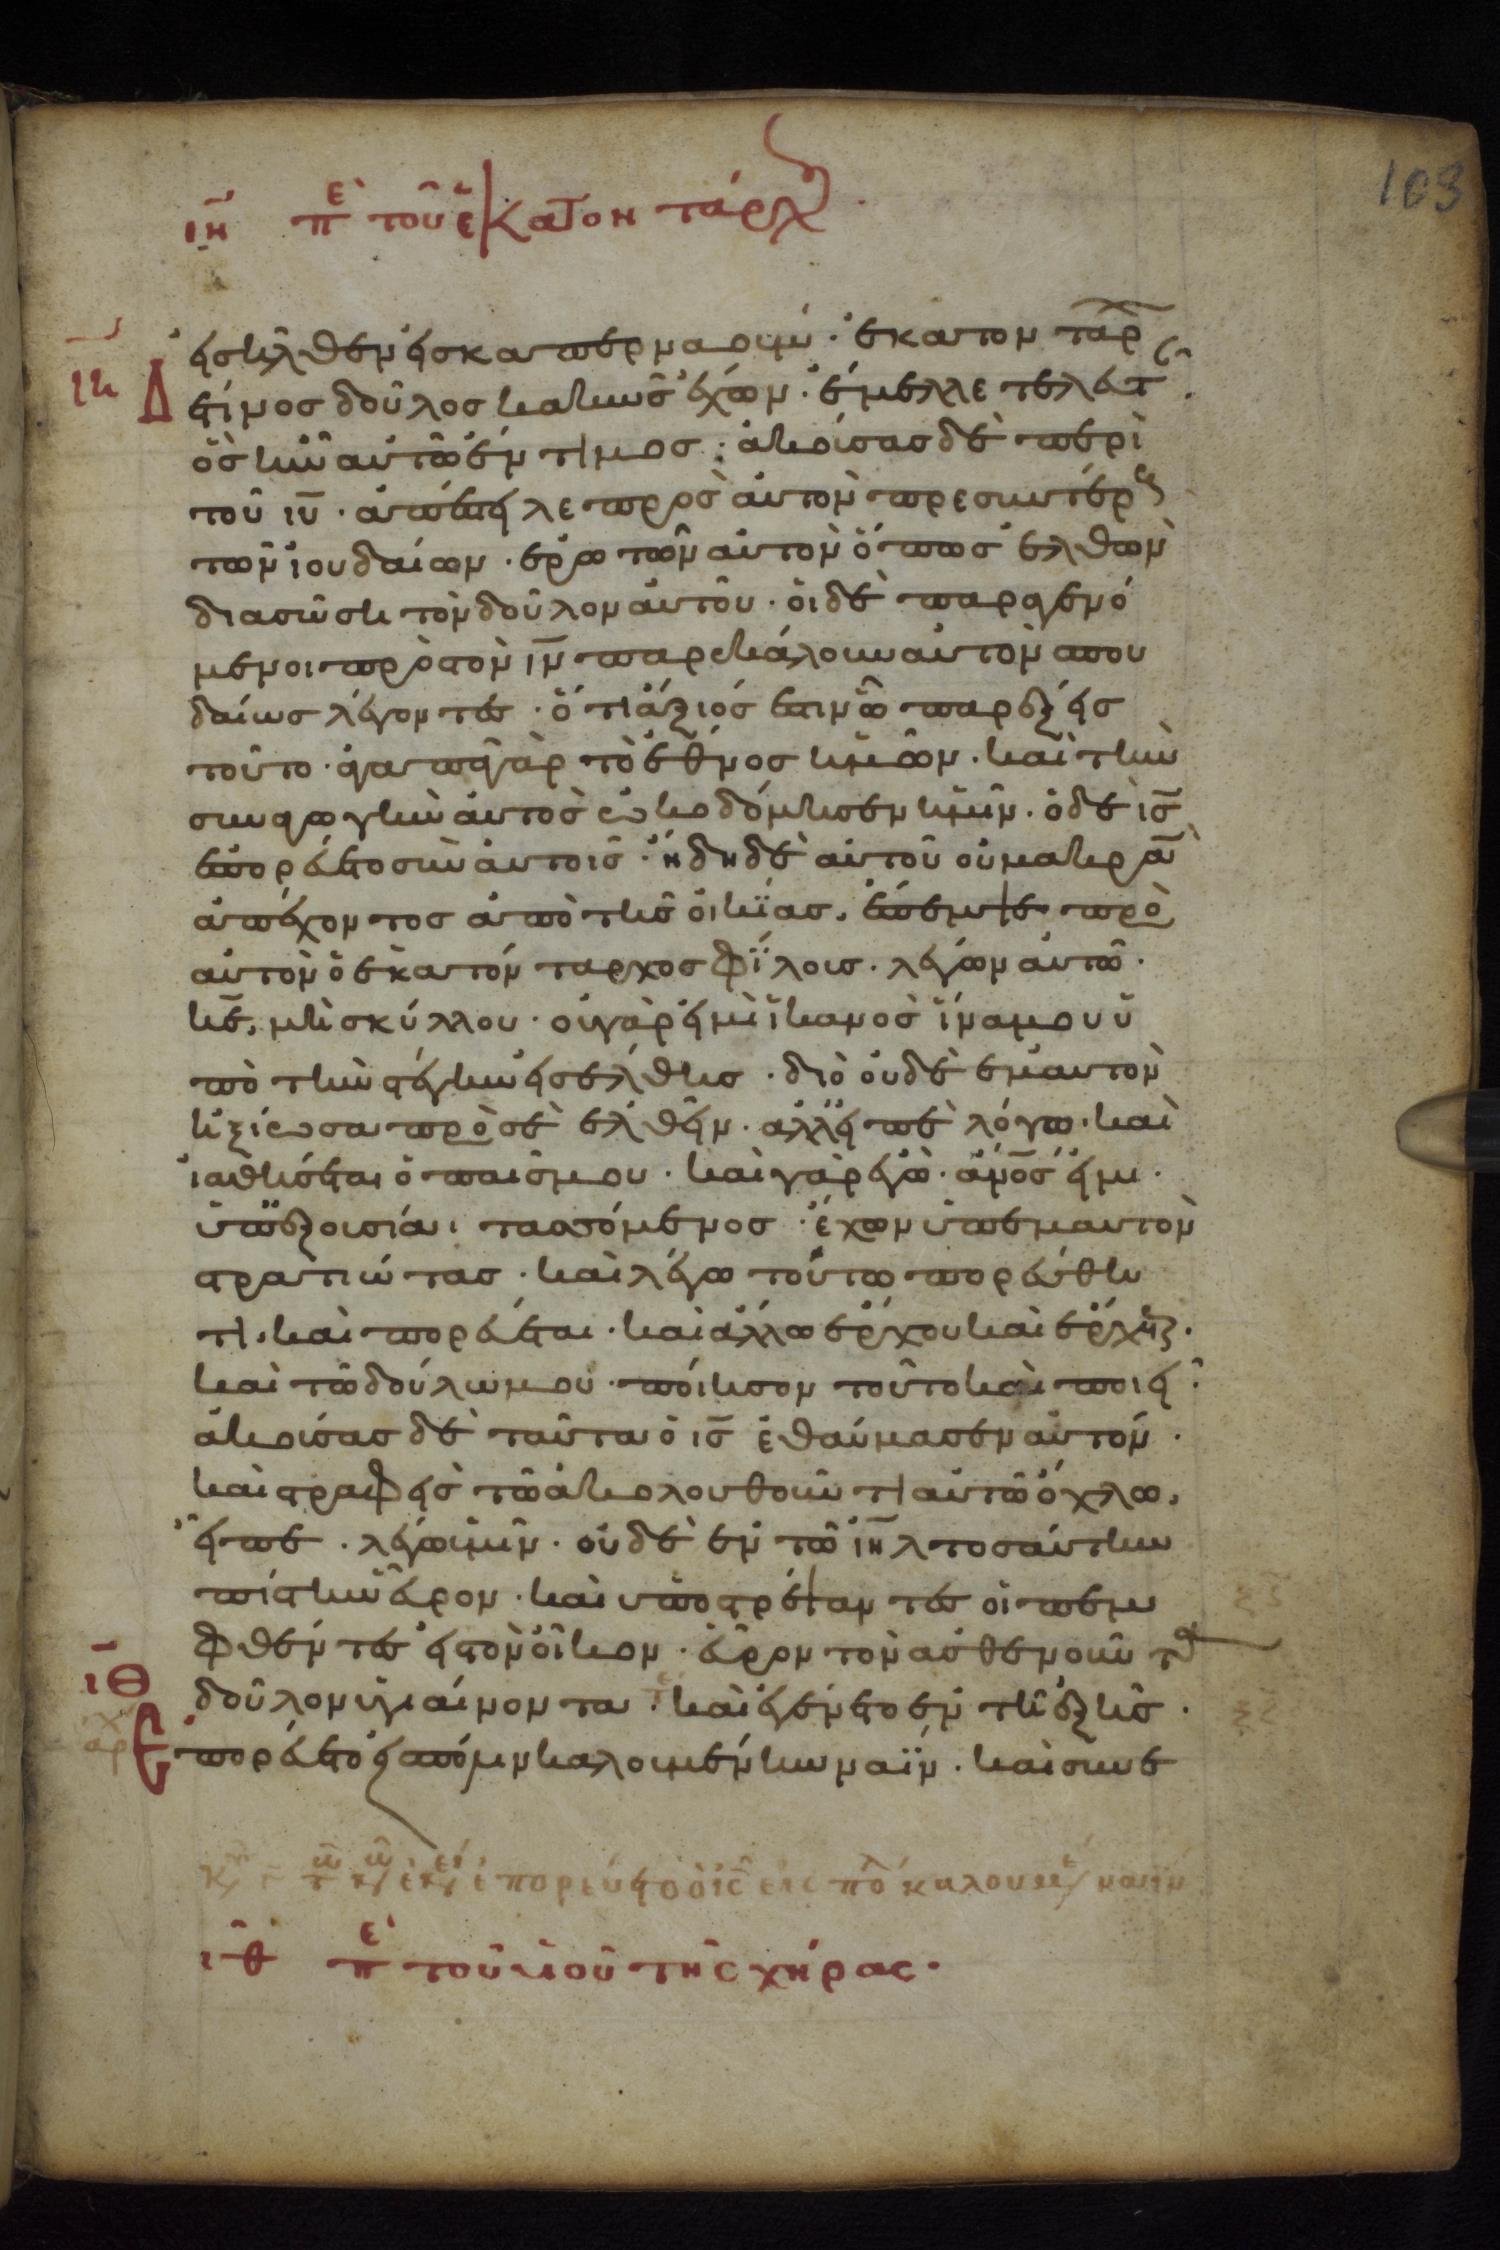 103
ιη πε τοῦ ἑκατοντάρχου.
εἰσῆλθεν εἰς καπερναούμ· ἑκατοντάρχ
ιη Δ ετινος δοῦλος κακῶς ἔχων· ἔμελλε τελευτ
ὃς ἦν αὐτῶ ἔντιμος· ἀκούσας δὲ περὶ
τοῦ ιυ· ἀπέστειλε πρὸς αὐτὸν πρεσβυτέρους
τῶν ἰουδαίων· ἐρωτῶν αὐτὸν ὅπως ἐλθὼν
διασώση τὸν δοῦλον αὐτοῦ· οἱ δὲ παραγενό
μενοι πρὸς τὸν ιν παρεκάλουν αὐτὸν σπου
δαίως λέγοντες· ὅτι ἄξιός ἐστιν ὧ παρέξεις
τοῦτο· ἀγαπᾶ γὰρ τὸ ἔθνος ἡμῶν· καὶ τὴν
συναγωγὴν αὐτὸς ὠκοδόμησεν ἡμῖν· ὁ δὲ ις
ἐπορεύετο σὺν αὐτοῖς· ἤδη δὲ αὐτοῦ οὐ μακρὰν
ἀπέχοντος ἀπὸ τῆς οἰκίας, ἔπεμψε πρὸ
αὐτὸν ὁ ἑκατόνταρχος φίλους· λέγων αὐτῶ·
κε, μὴ σκύλλου· οὐ γὰρ εἰμὶ ἱκανὸς ἵνα μου ὑ
πὸ τὴν στέγην εἰσέλθης· διὸ οὐδὲ ἐμαυτὸν
ἠξίωσα πρὸς σὲ ἐλθεῖν· ἀλλ εἰπὲ λόγω· καὶ
ἰαθήσεται ὁ παῖς μου· καὶ γὰρ ἐγὼ· ἄνος εἰμι·
ὑπ ἐξουσίαν τασσόμενος· ἔχων ὑπ ἐμαυτὸν
στρατιώτας· καὶ λέγω τούτω πορεύθη
τι· καὶ πορεύεται· καὶ ἄλλω ἔρχου καὶ ἔρχεται·
καὶ τῶ δούλω μου· ποίησον τοῦτο καὶ ποιεῖ·
ἀκούσας δὲ ταῦτα ὁ ις ἐθαύμασεν αὐτόν·
καὶ στραφεὶς τῶ ἀκολουθοῦντι αὐτῶ ὄχλω,
εἶπε· λέγω ὑμῖν· οὐδὲ ἐν τῶ ιηλ τοσαύτην
πίστην εὗρον· καὶ ὑποστρέψαντες οἱ πεμ
φθέντες εἰς τὸν οἶκον· εὗρον τὸν ἀσθενοῦντα
ιθ δοῦλον ὑγιαίνοντα· καὶ ἐγένετο ἐν τῆ ἑξῆς·
Επορεύετο εἰς πόλιν καλουμένην ναΐν· καὶ συνε
ἐπορεύετο ὁ ις εἰς πόλ καλουμέν ναΐν
ιθ πε τοῦ υἱοῦ τῆς χήρας·